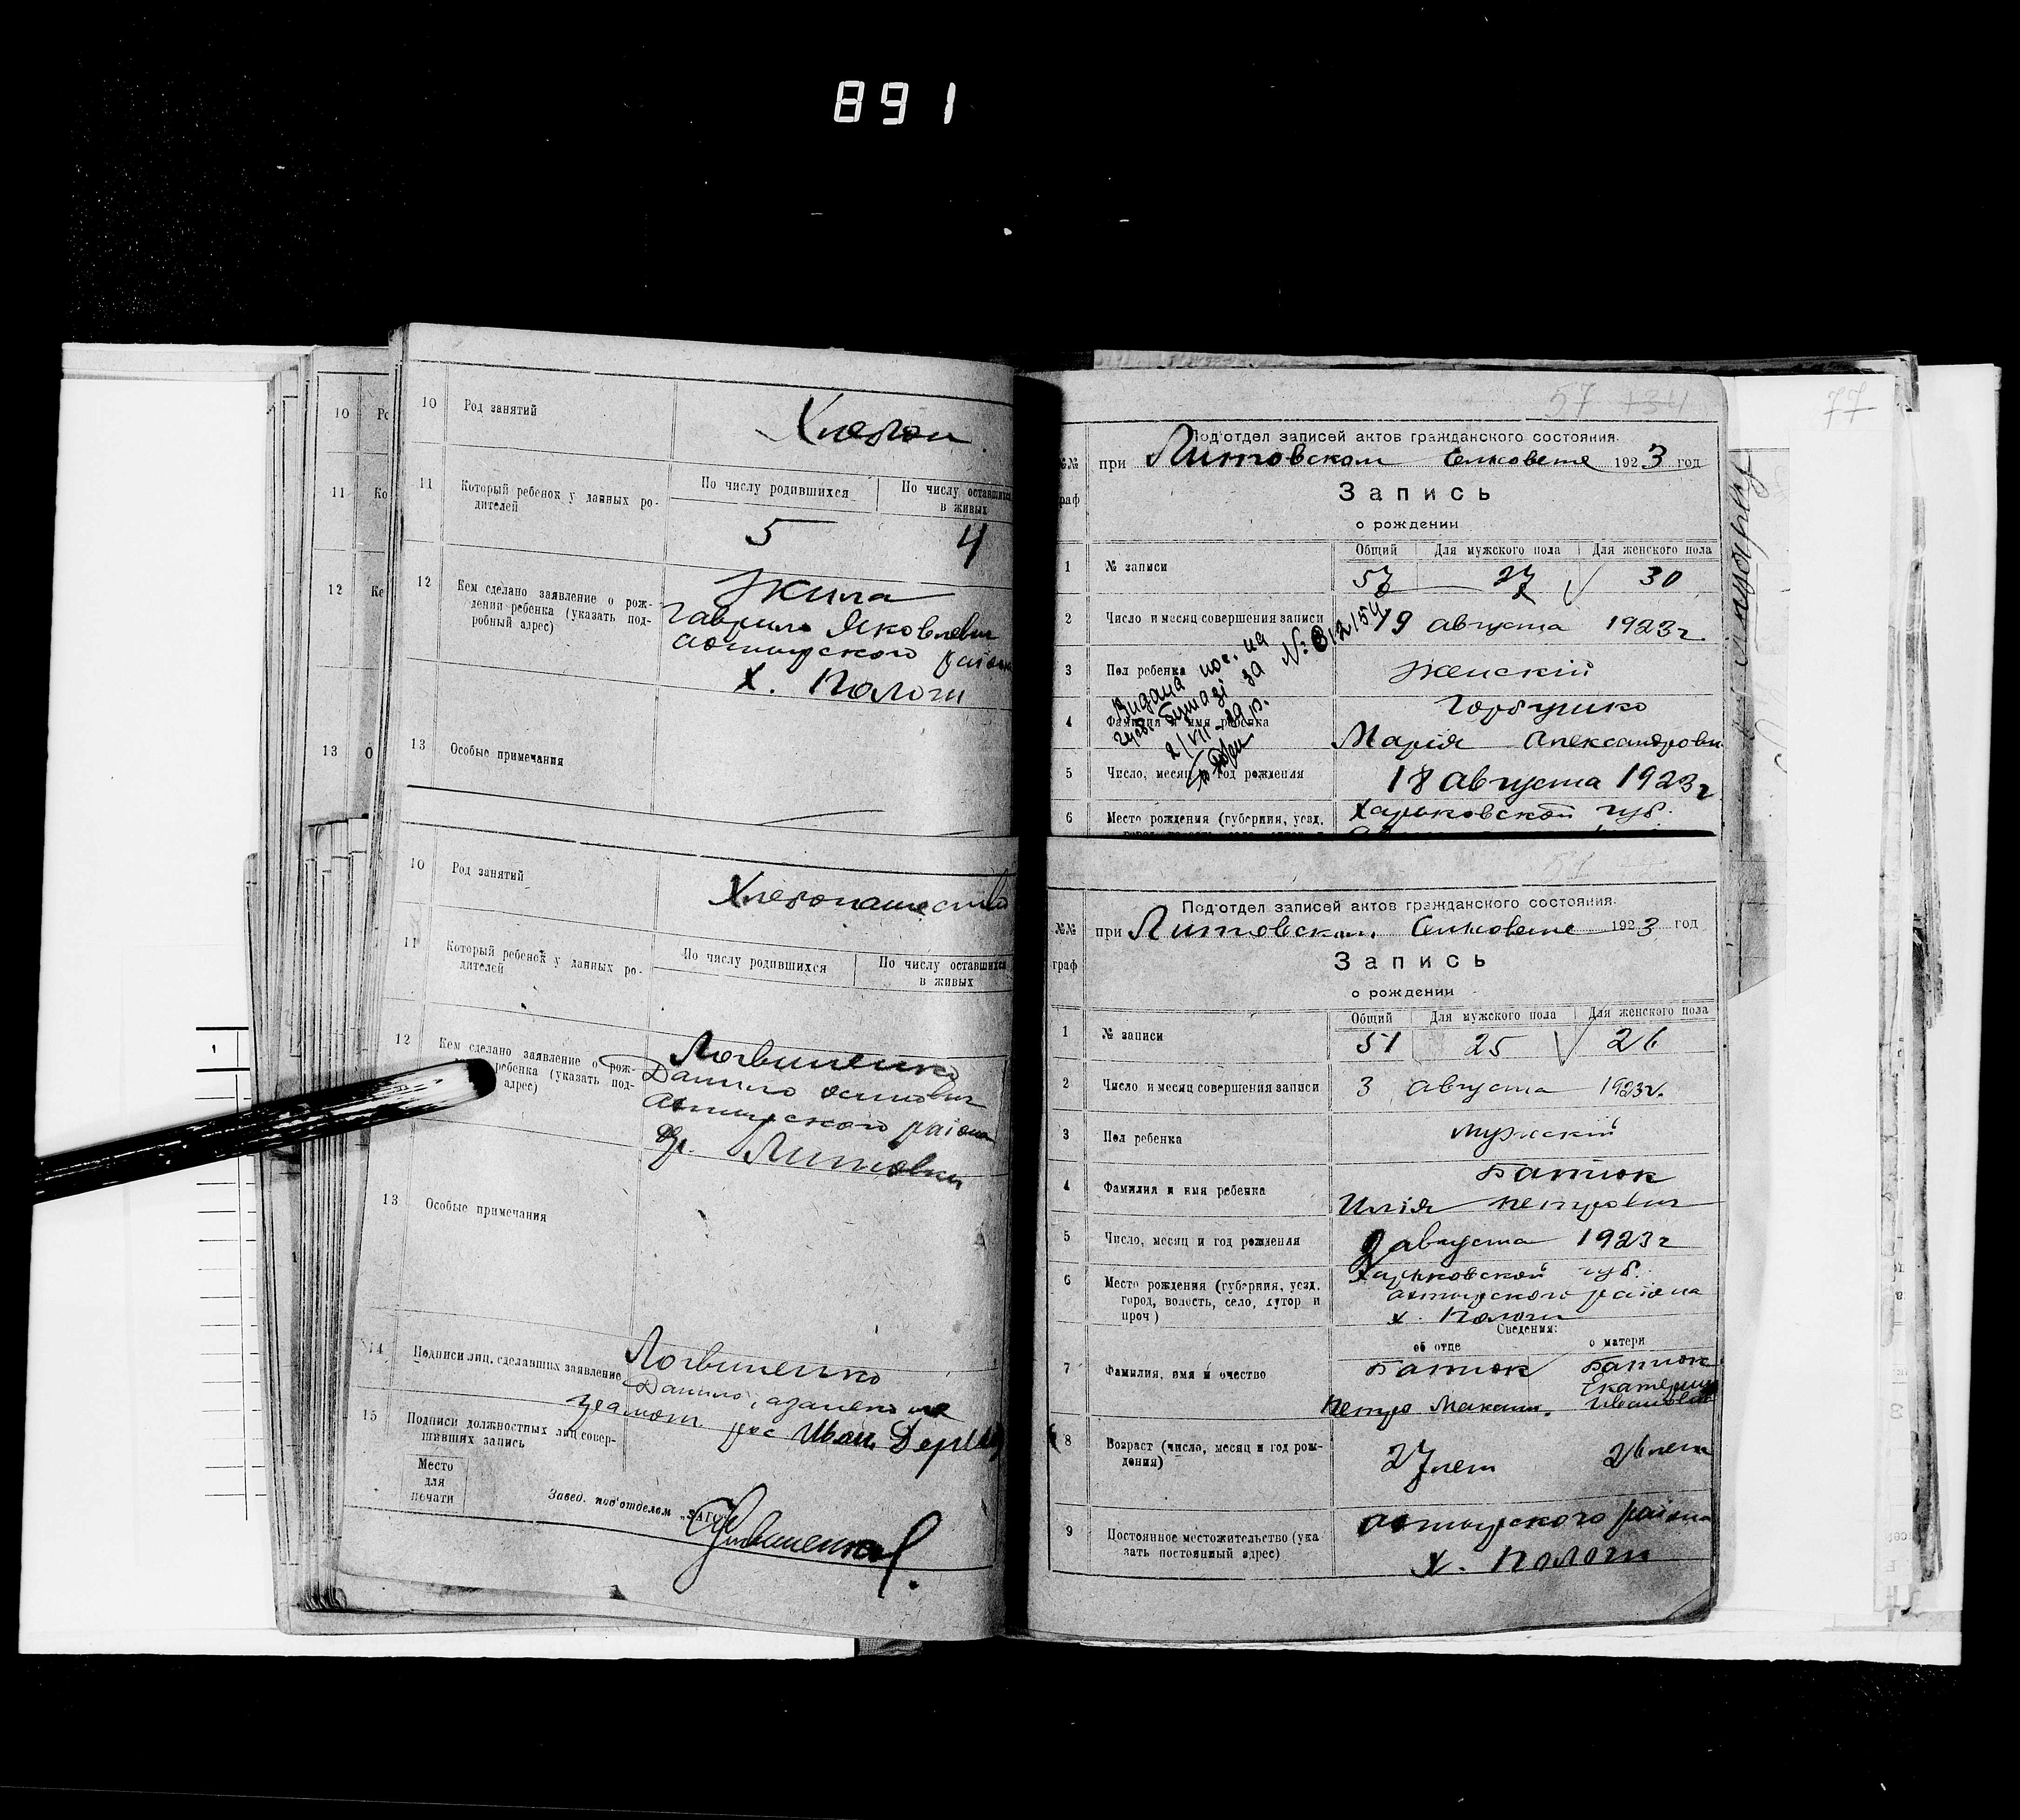 891
10 Род занятий Хлебоп
11 Который ребенок у данных ро-
дителей
По числу родившихся
По числу оставшихся
в живых
5 4
12 Кем сделано заявление о рож-
дении ребенка (указать под-
робный адрес)
Жила
Гаврило Яковлевич
Ахтырского района
х. Пологи
13 Особые примечания
10 Род занятий Хлебопашество
11 Который ребенок у данных ро-
дителей
По числу родившихся
По числу оставшихся
в живых
12 Кем сделано заявление о рож-
ребенка (указать под-
адрес)
Логвиненко
Данило Осипович
Ахтырского района
Литовки
13 Особые примечания
14 Подписи лиц, сделавших заявление
Логвиненко
Данило, а за него не
грамот. рос Иван
15 Подписи должностных лиц совер-
шивших запись
Место
для
печати
Завед. под'отделом „ЗАГС"
10 Ро
11 Ко
12 Ке
13 О
57 134
77
Под'отдел записей актов гражданского состояния.
№№ при Литовском Сельсовете 1923 год
граф
Запись
о рождении
Общий Для мужского пола Для женского пола
1 № записи 57 27 30
2 Число и месяц совершения записи 19 августа 1923 г.
3 Пол ребенка женскій
4 Фамилия и имя ребенка Горбушко
Марія Александровн
5 Число, месяц и год рождения 18 августа 1923 г
6 Место рождения (губерния, уезд, Харьковской губ.
Видана пос. на
бумазі за № 312154
2/VII-29 р.
51
Под'отдел записей актов гражданского состояния.
№№ при Литовском Сельсовете 1923 год
граф
Запись
о рождении
Общий Для мужского пола Для женского пола
1 № записи 51 25 26
2 Число и месяц совершения записи 3 августа 1923 г.
3 Пол ребенка мужскій
4 Фамилия и имя ребенка Батюк
Илія Петрович
5 Число, месяц и год рождения 2 августа 1923 г
6 Место рождения (губерния, уезд,
город, волость, село, хутор и
проч)
Харьковской губ.
Ахтырского района
х. Пологи
Сведения:
об отце о матери
7 Фамилия, имя и очество
Батюк
Петро Максим.
Батюк
Екатерина
Ивановна
8 Возраст (число, месяц и год рож-
дения)
27 лет 26 лет
9 Постоянное местожительство (ука
зать постоянный адрес)
Ахтырского района
х. Пологи